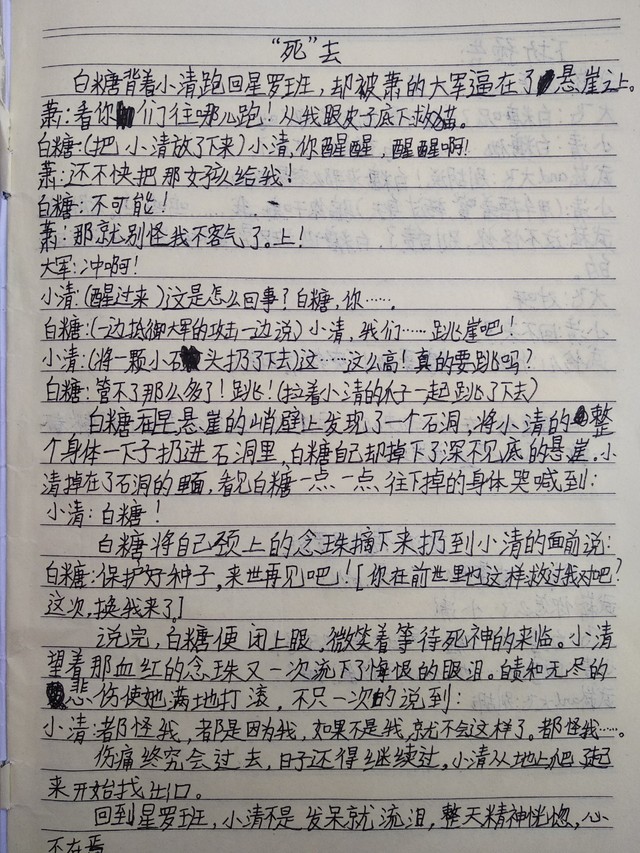 “死”去
白糖背着小清跑回星罗班，却被萧的大军逼在了悬崖之上。
萧：看你们往哪儿跑！从我眼皮子底下救猫。
白糖：(把小清放了下来)小清，你醒醒，醒醒啊！
萧：还不快把那女孩给我！
白糖：不可能！
萧：那就别怪我不客气了。上！
大军：冲啊！
小清：(醒过来)这是怎么回事？白糖，你……
白糖：(一边抵御大军的攻击一边说)小清，我们……跳崖吧！
小清：(将一颗小石头扔了下去)这……这么高！真的要跳吗？
白糖：管不了那么多了！跳！(拉着小清的爪子一起跳了下去)
白糖在悬崖的峭壁上发现了一个石洞，将小清的整
个身体一下子扔进石洞里，白糖自己却掉下了深不见底的悬崖。小
清掉在了石洞的里面，看见白糖一点一点往下掉的身体哭喊到：
小清：白糖！
白糖将自己颈上的念珠摘下来扔到小清的面前说：
白糖：保护好种子，来世再见吧！[你在前世里也这样救过我对吧？
这次，换我来了]
说完，白糖便闭上眼，微笑着等待死神的来临。小清
望着那血红的念珠又一次流下了悔恨的眼泪。自责和无尽的
悲伤使她满地打滚，不只一次的说到：
小清：都怪我，都是因为我，如果不是我，就不会这样了。都怪我……
伤痛终究会过去，日子还得继续过。小清从地上爬了起
来开始找出口。
回到星罗班，小清不是发呆就流泪，整天精神恍惚，心
不在焉